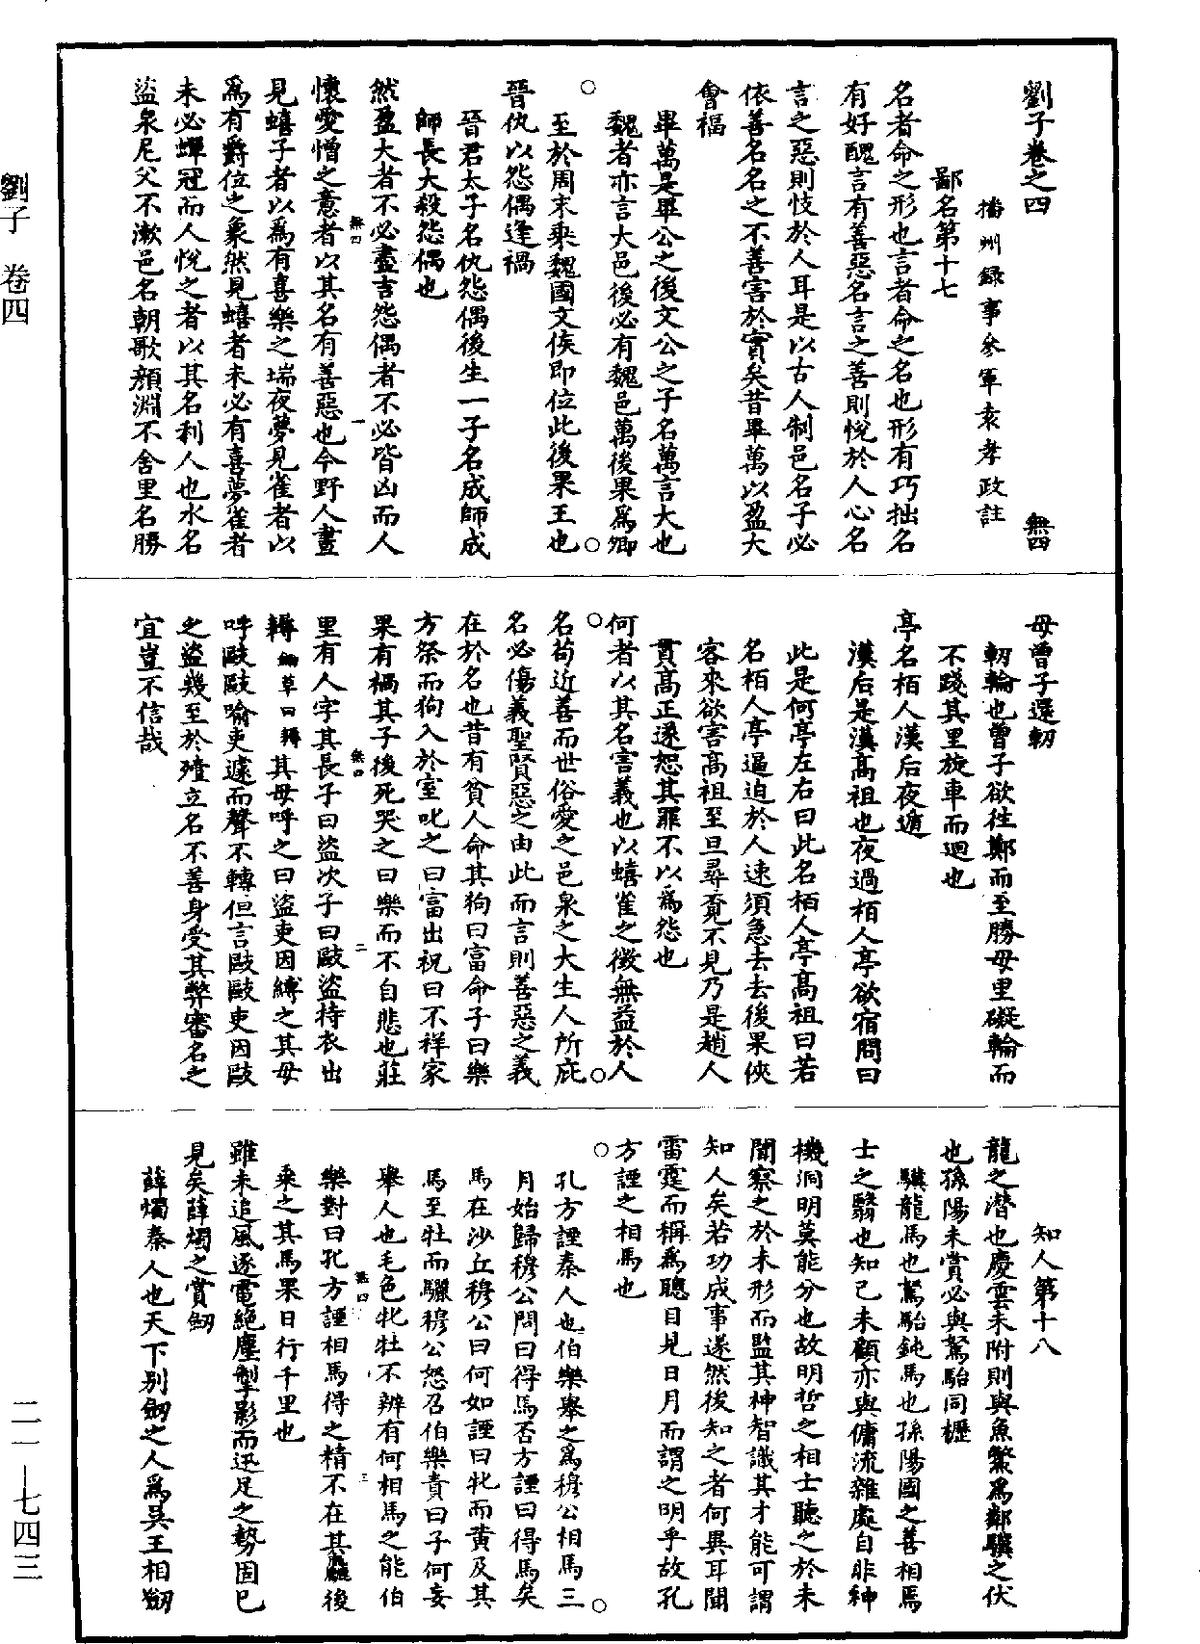 劉子卷之四　無四
播州錄事參軍袁孝政註
鄙名第十七
名者命之形也言者命之名也形有巧拙名
有好醜言有善惡名言之善則悅於人心名
言之惡則忮於人耳是以古人制邑名子必
依善名名之不善害於實矣昔畢萬以盈大
會福
畢萬是畢公之後文公之子名萬言大也
魏者亦言大邑後必有魏邑萬後果爲卿
至於周末乘魏國文侯即位此後果王也
晉仇以怨偶逢禍
晉君太子名仇怨偶後生一子名成師成
師長大殺怨偶也
然盈大者不必盡吉怨偶者不必皆凶而人
懷愛憎之意者以其名有善惡也今野人晝
見蟢子者以爲有喜樂之瑞夜夢見雀者以
爲有爵位之象然見蟢者未必有喜夢雀者
未必蟬冠而人悅之者以其名利人也水名
盜泉尼父不漱邑名朝歌顏淵不舍里名勝
母曾子還軔
軔輪也曾子欲往鄭而至勝母里礙輪而
不踐其里旋車而迴也
亭名栢人漢后夜遁
漢后是漢高祖也夜過栢人亭欲宿問曰
此是何亭左右曰此名栢人亭高祖曰若
名栢人亭逼迫於人速須急去去後果俠
客來欲害高祖至旦尋覓不見乃是趙人
貫高正遂恕其罪不以爲怨也
何者以其名害義也以蟢雀之徵無益於人
名苟近善而世俗愛之邑泉之大生人所庇
名必傷義聖賢惡之由此而言則善惡之義
在於名也昔有貧人命其狗曰富命子曰樂
方祭而狗入於室叱之曰富出祝曰不祥家
果有禍其子後死哭之曰樂而不自悲也莊
里有人字其長子曰盜次子曰毆盜持衣出
耨鋤草曰耨其母呼之曰盜吏因縛之其母
呼毆毆喻吏遽而聲不轉但言毆毆吏因毆
之盜幾至於殪立名不善身受其弊審名之
宜豈不信哉
知人第十八
龍之潛也慶雲未附則與魚鱉爲鄰驥之伏
也孫陽未賞必與駑駘同櫪
驥龍馬也駑駘鈍馬也孫陽國之善相馬
士之翳也知己未顧亦與傭流雜處自非神
機洞明莫能分也故明哲之相士聽之於未
聞察之於未形而監其神智識其才能可謂
知人矣若功成事遂然後知之者何異耳聞
雷霆而稱爲聰目見日月而謂之明乎故孔
方諲之相馬也
孔方諲秦人也伯樂舉之爲穆公相馬三
月始歸穆公問曰得馬否方諲曰得馬矣
馬在沙丘穆公曰何如諲曰牝而黃及其
馬至牡而驪穆公怒召伯樂責曰子何妄
舉人也毛色牝牡不辨有何相馬之能伯
樂對曰孔方諲相馬得之精不在其麤後
乘之其馬果日行千里也
雖未追風逐電絕塵掣影而迅足之勢固已
見矣薛燭之賞劒
薛燭秦人也天下別劒之人爲吳王相劒
劉子　卷四
二一—七四三